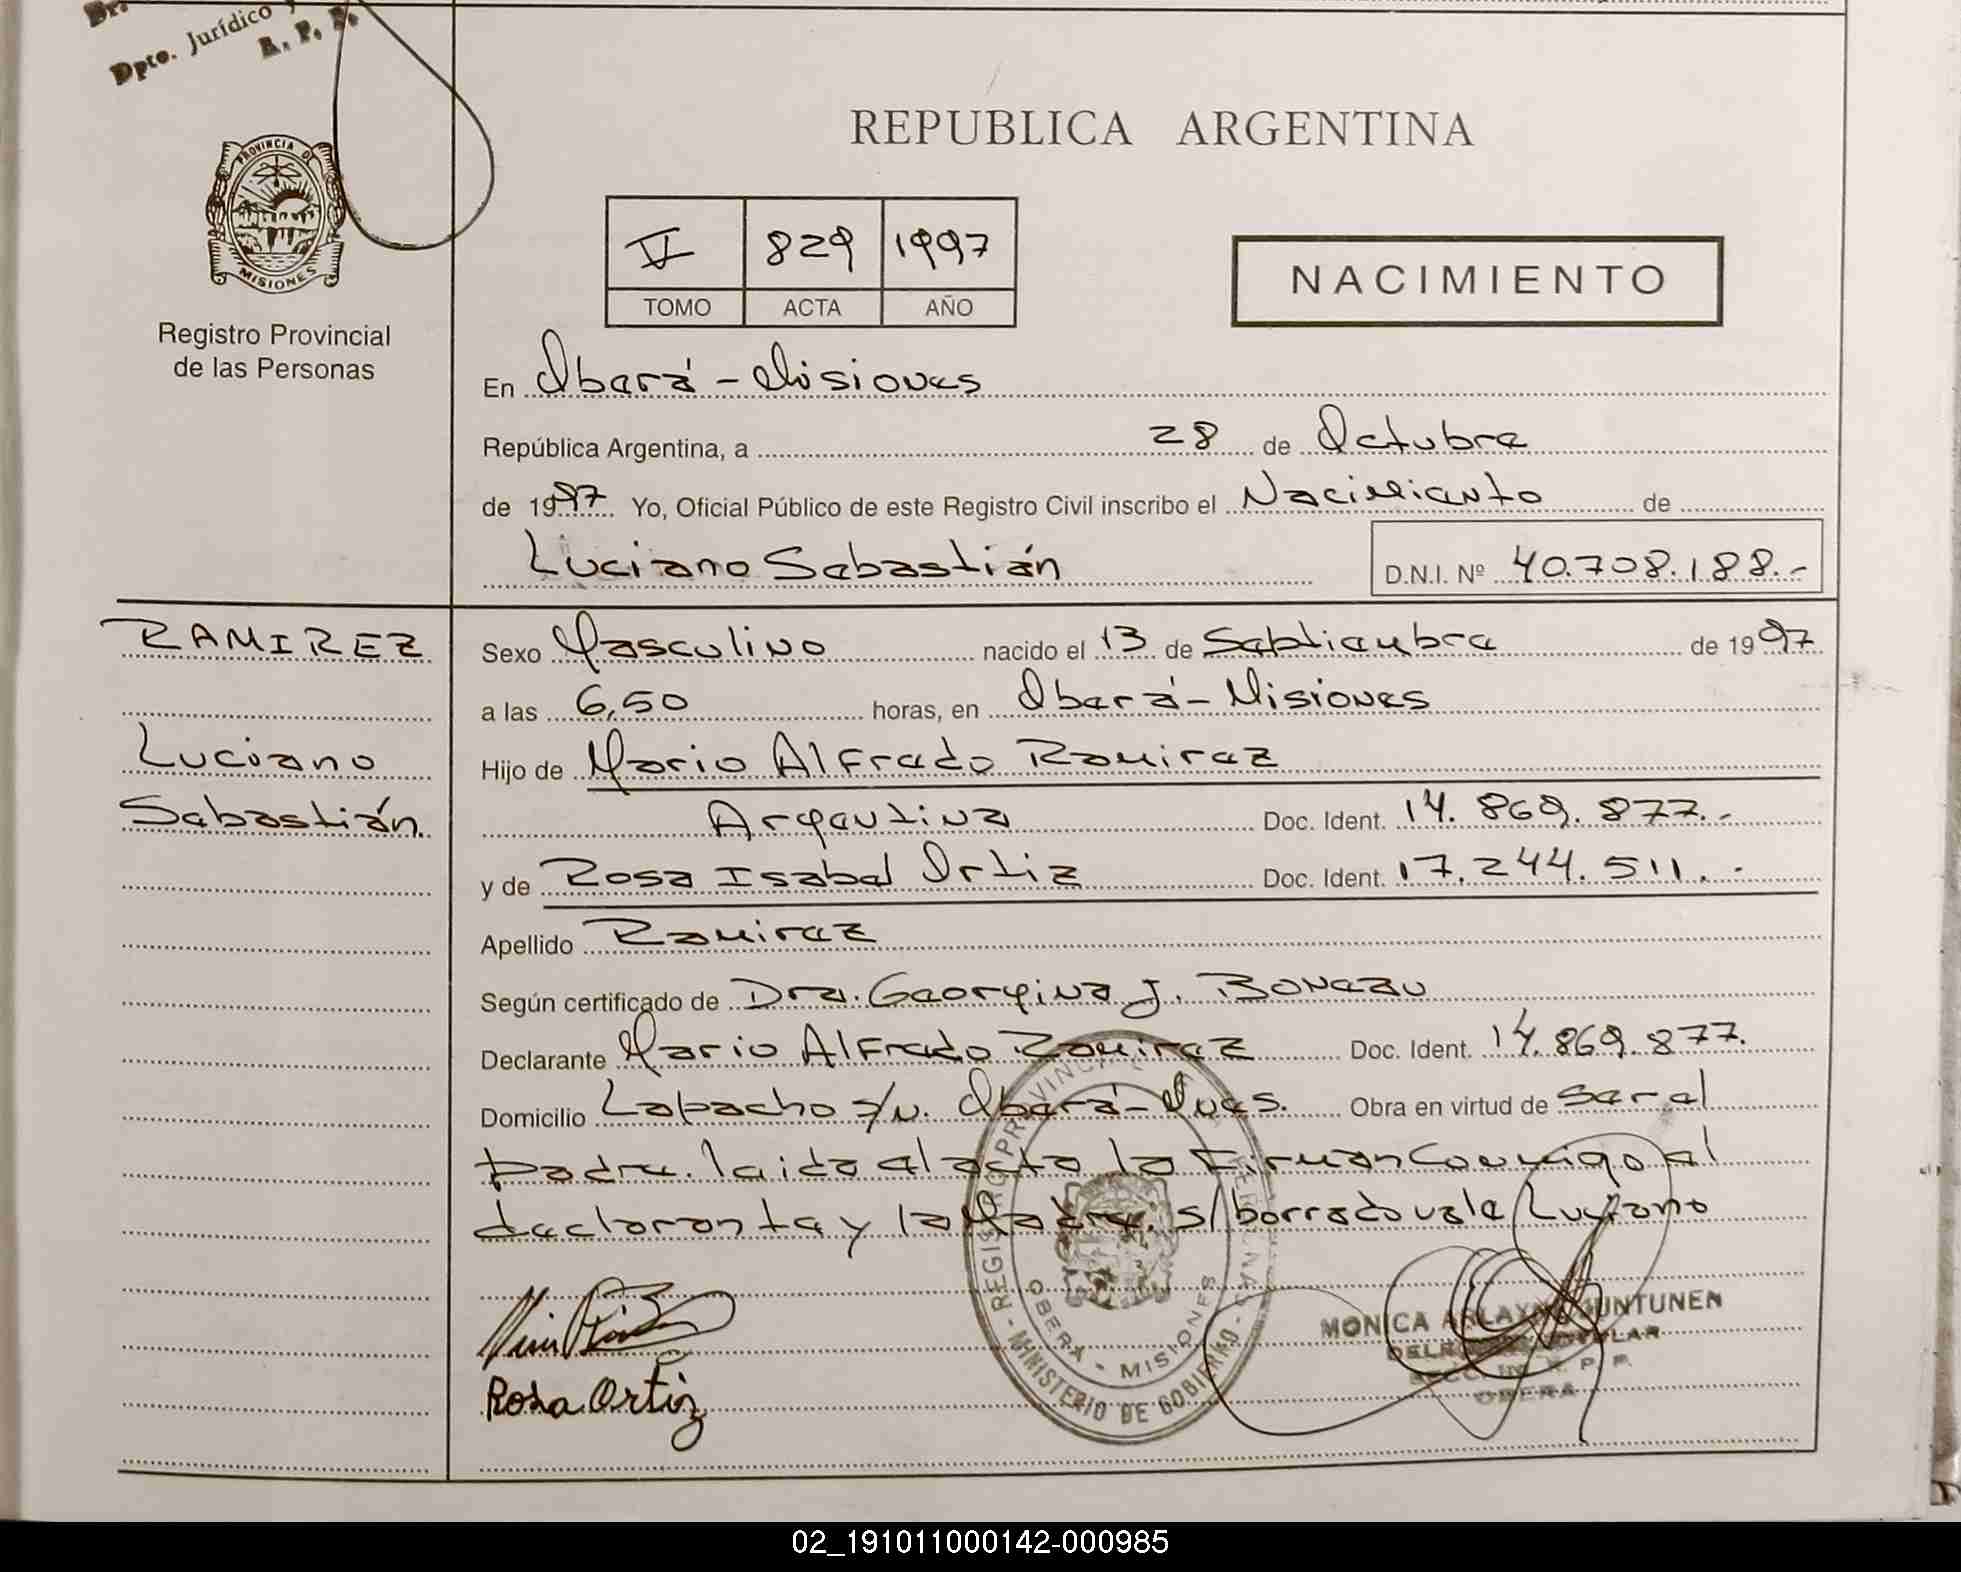 Dr.
Dpto. Jurídico
R. P. P.
PROVINCIA DE
MISIONES
Registro Provincial
de las Personas
REPUBLICA ARGENTINA
V 829 1997
TOMO ACTA AÑO
NACIMIENTO
En Oberá - Misiones
República Argentina, a 28 de Octubre
de 1997 Yo, Oficial Público de este Registro Civil inscribo el Nacimiento de
Luciano Sebastián D.N.I. Nº 40.708.188.-
RAMIREZ
Luciano
Sebastián
Sexo Masculino nacido el 13 de Septiembre de 1997
a las 6,50 horas, en Oberá - Misiones
Hijo de Mario Alfredo Ramirez
Argentina Doc. Ident. 14.869.877.-
y de Rosa Isabel Ortiz Doc. Ident. 17.244.511.-
Apellido Ramirez
Según certificado de Dra. Georgina J.
Declarante Mario Alfredo Ramirez Doc. Ident. 14.869.877.
Domicilio Lapacho s/n. Oberá - Mnes. Obra en virtud de ser el
padre. leida el acta la firman conmigo el
declarante y la Madre. s/borrado vale Luciano
Rosa Ortiz
REGISTRO PROVINCIAL DE LAS PERSONAS - MINISTERIO DE GOBIERNO -
OBERA - MISIONES
MONICA UNTUNEN
R. P. P.
OBERA
02_191011000142-000985